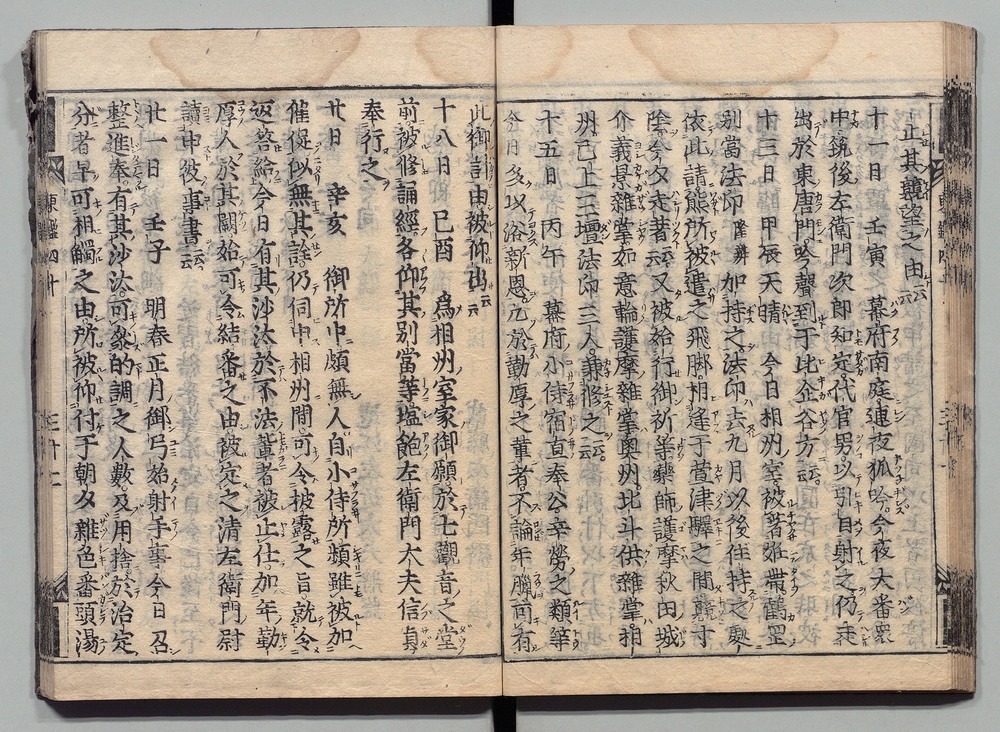 止其襲望之由云云
十一日 壬寅 幕府南庭連夜狐吟今夜大番衆
中筑後左衛門次郎知定代官男以引自射之仍走
出於東唐門吟聲到于比企谷方云云
十三日 甲辰天晴 今日相州室被著姙帶鶴岡
別當法印隆辨加持之法印去九月以後住持之処
依此請態所被遣之飛脚相逢于萱津驛之間競寸
陰今夕走著云云又被始行御祈藥師護摩秋田城
介義景雜掌如意輪護摩雜掌奥州北斗供雜掌相
州已上三壇法印三人兼修之云云
十五日 丙午 幕府小侍宿直奉公辛勞之類等
今日多以浴新恩凡於勤厚之輩者不論年臈面有
此御計由被仰出云云
十八日 己酉 爲相州室家御願於七觀音之堂
前被修誦經各仰其別當等塩飽左衛門大夫信貞
奉行之
廿日 辛亥 御所中頗無人自小侍所頻雖被加
催促似無其詮仍伺申相州間可令披露之旨就令
返答給今日有其沙汰於不法輩者被止仕加年勤
厚人於其闕始可令結番之由被定之清左衛門尉
讀申彼事書云云
廿一日 壬子 明春正月御弓始射手事今日召
整進奉有其沙汰可参的調之人數及用捨於治定
分者早可相觸之由所被仰付于朝夕雜色番頭湯
東鑑四十
三十二